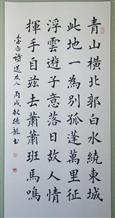 青山橫北郭白水繞東城
此地一為別孤蓬萬里征
浮雲遊子意落日故人情
揮手自茲去蕭蕭班馬鳴
李白詩送友人丙戌秋德龍書